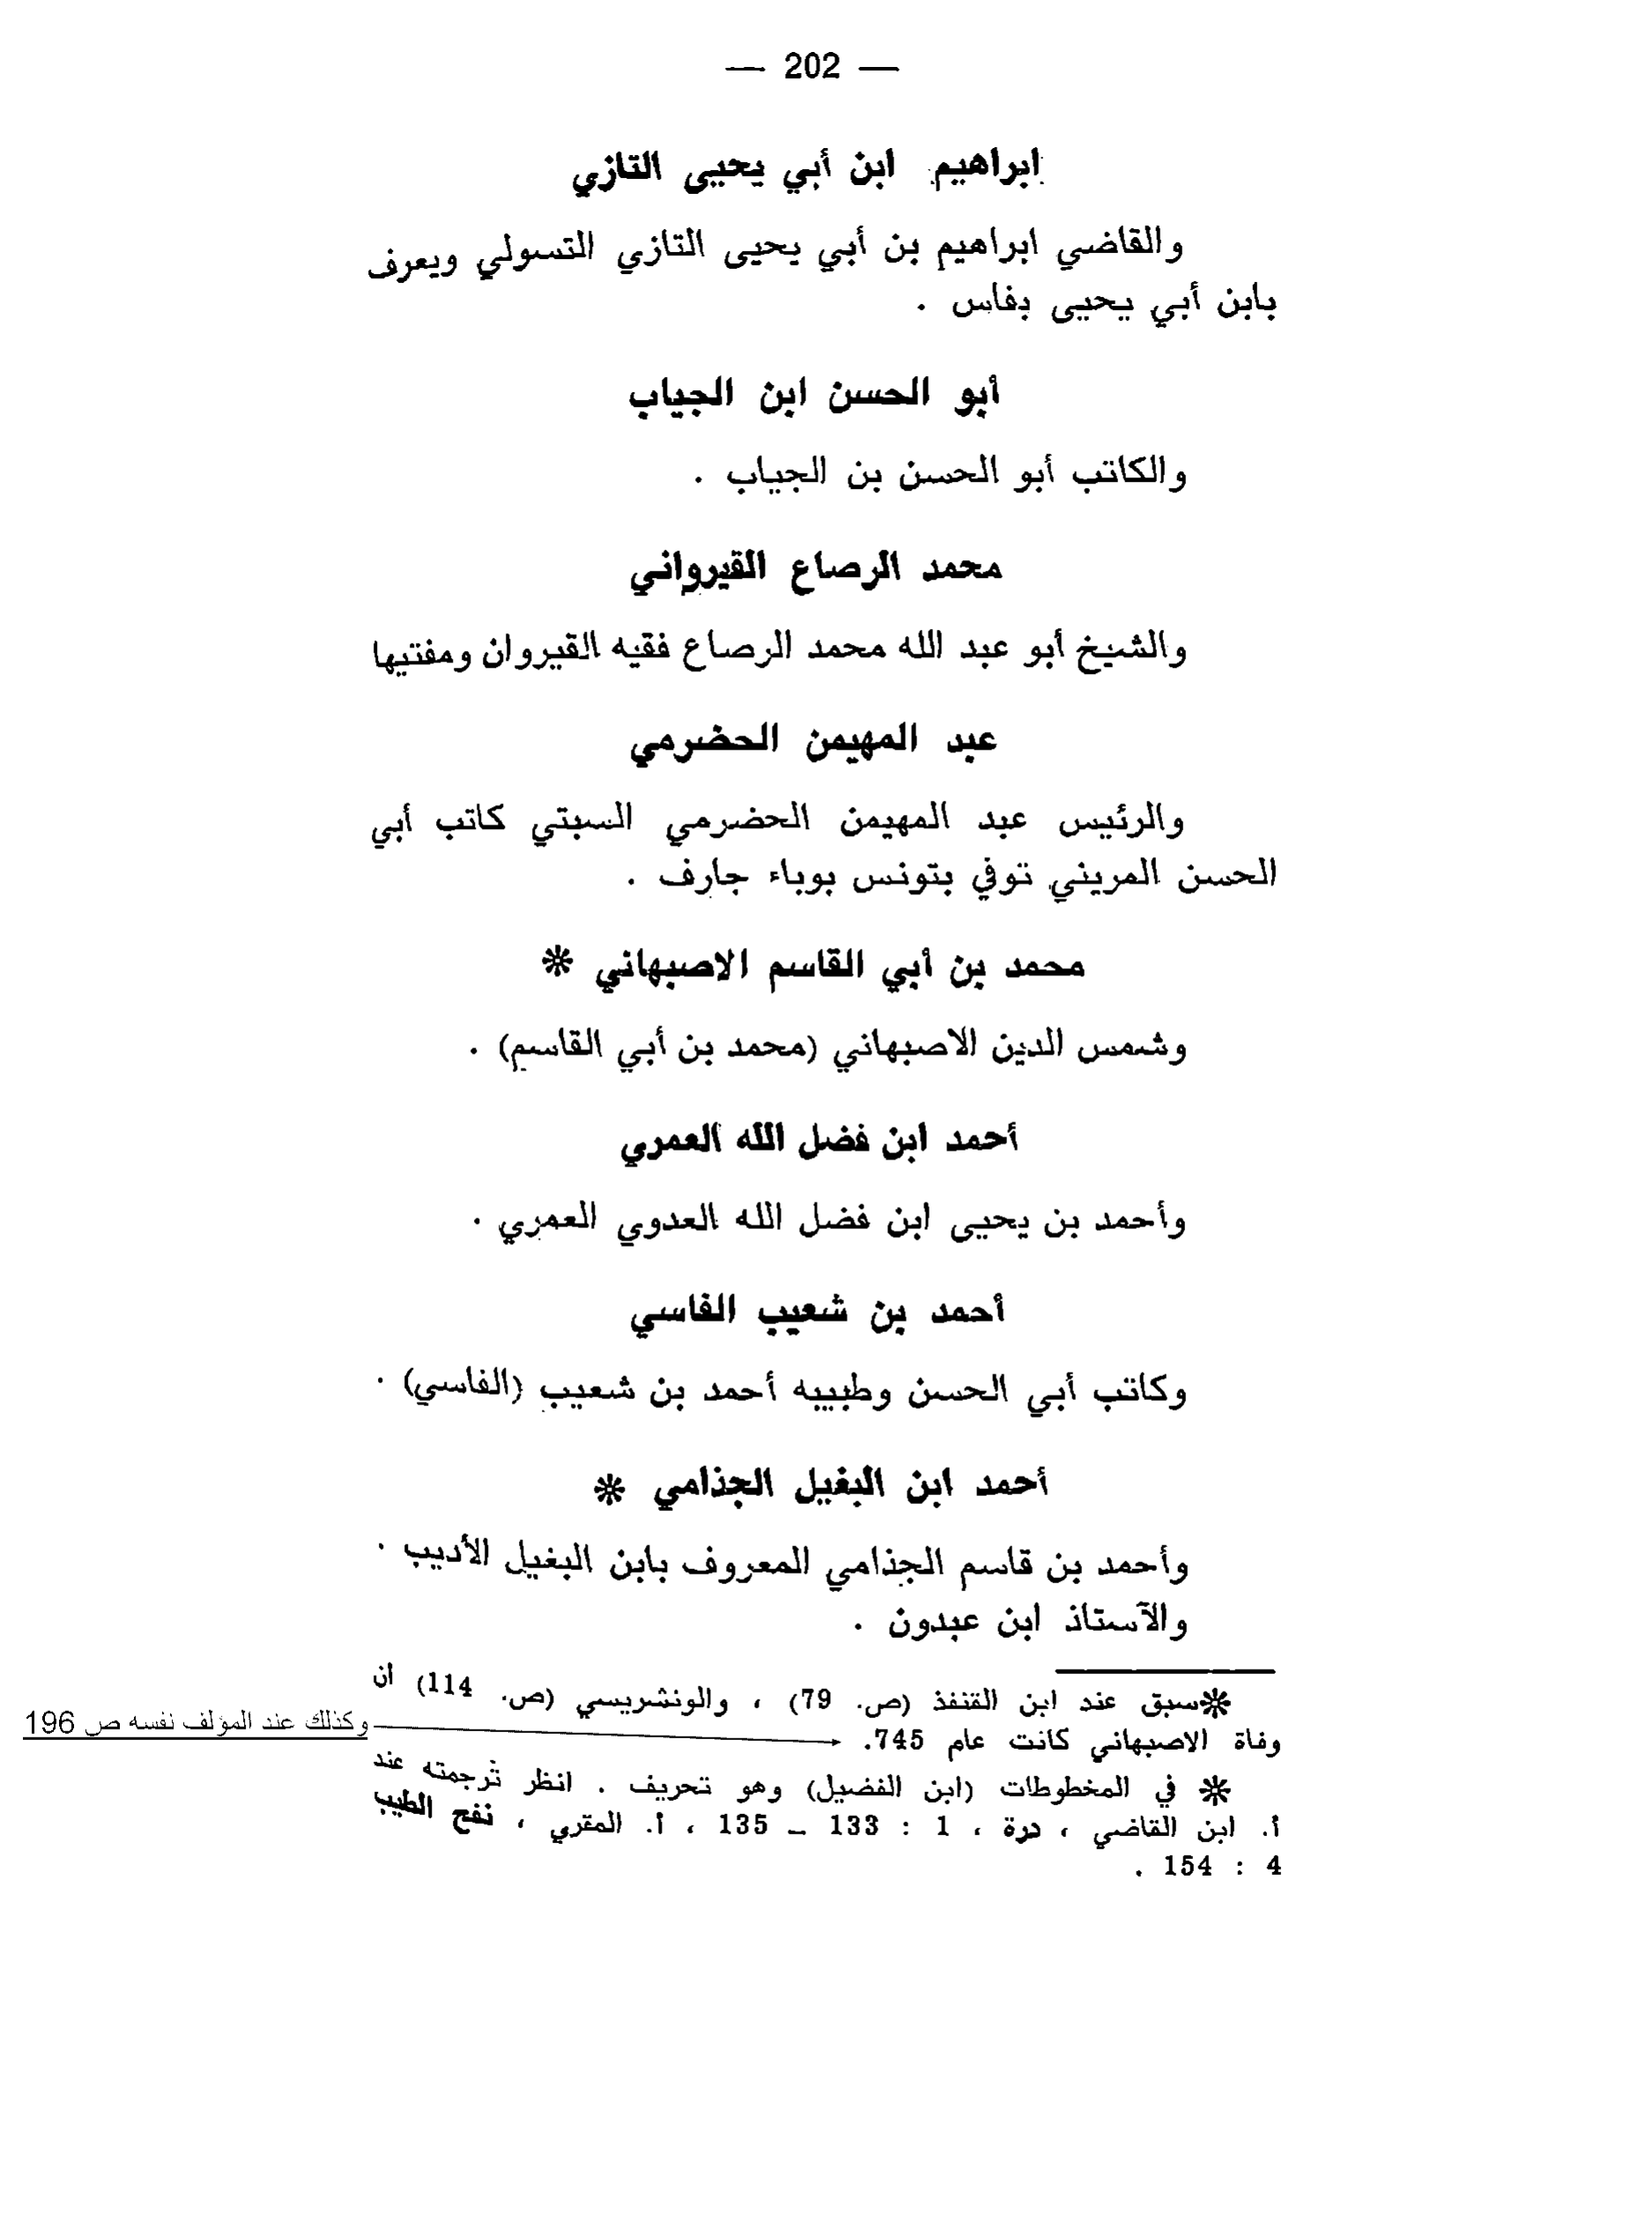 — 202 —
ابراهيم ابن أبي يحيى التازي
والقاضي ابراهيم بن أبي يحيى التازي التسولي ويعرف
بابن أبي يحيى بفاس .
أبو الحسن ابن الجياب
والكاتب أبو الحسن بن الجياب .
محمد الرصاع القيرواني
والشيخ أبو عبد الله محمد الرصاع فقيه القيروان ومفتيها
عبد المهيمن الحضرمي
والرئيس عبد المهيمن الحضرمي السبتي كاتب أبي
الحسن المريني توفي بتونس بوباء جارف .
محمد بن أبي القاسم الاصبهاني *
وشمس الدين الاصبهاني (محمد بن أبي القاسم) .
أحمد ابن فضل الله العمري
وأحمد بن يحيى ابن فضل الله العدوي العمري .
أحمد بن شعيب الفاسي
وكاتب أبي الحسن وطبيبه أحمد بن شعيب (الفاسي) .
أحمد ابن البغيل الجذامي *
وأحمد بن قاسم الجذامي المعروف بابن البغيل الأديب .
والآستاذ ابن عبدون .
*سبق عند ابن القنفذ (ص. 79) ، والونشريسي (ص. 114) أن
وفاة الاصبهاني كانت عام 745.
وكذلك عند المؤلف نفسه ص 196
* في المخطوطات (ابن الفضيل) وهو تحريف . انظر ترجمته عند
أ. ابن القاضي ، درة ، 1 : 133 – 135 ، أ. المقري ، نفح الطيب
4 : 154 .